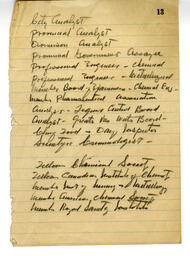 13
City Analyst
Provincial Analyst
Dominion Analyst
Provincial Government Assayer
Professional Engineer - Chemical
Professional Engineer - Metallurgical
Member Board of Examiners - Chemical Eng.
Member Pharmaceutical Association
Analyst - Liquor Control Board
Analyst - Greater Van Water Board -
Food - Dairy Inspector
Criminologist -
Fellow Chemical Society
Fellow Canadian Institute of Chemistry
Member Inst. of Mining and Metallurgy
Member American Chemical Society
Member Royal Sanitary Institute